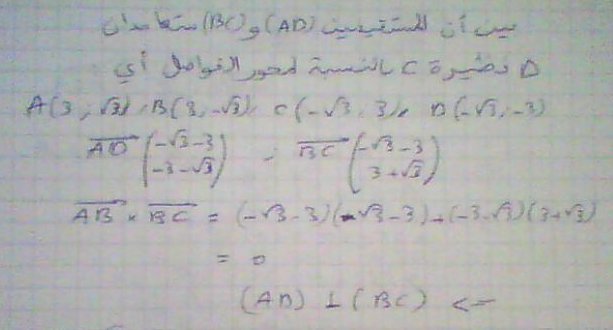 بين أن المستقيمين (AD) و (BC) متعامدان
D نظيرة C بالنسبة لمحور الفواصل أي
A(3, √3), B(3, -√3), C(-√3, 3), D(-√3, -3)
AD (-√3-3 -3-√3) , BC (-√3-3 3+√3)
AB × BC = (-√3-3)(-√3-3)+(-3-√3)(3+√3)
= 0
(AD) ⊥ (BC) <=